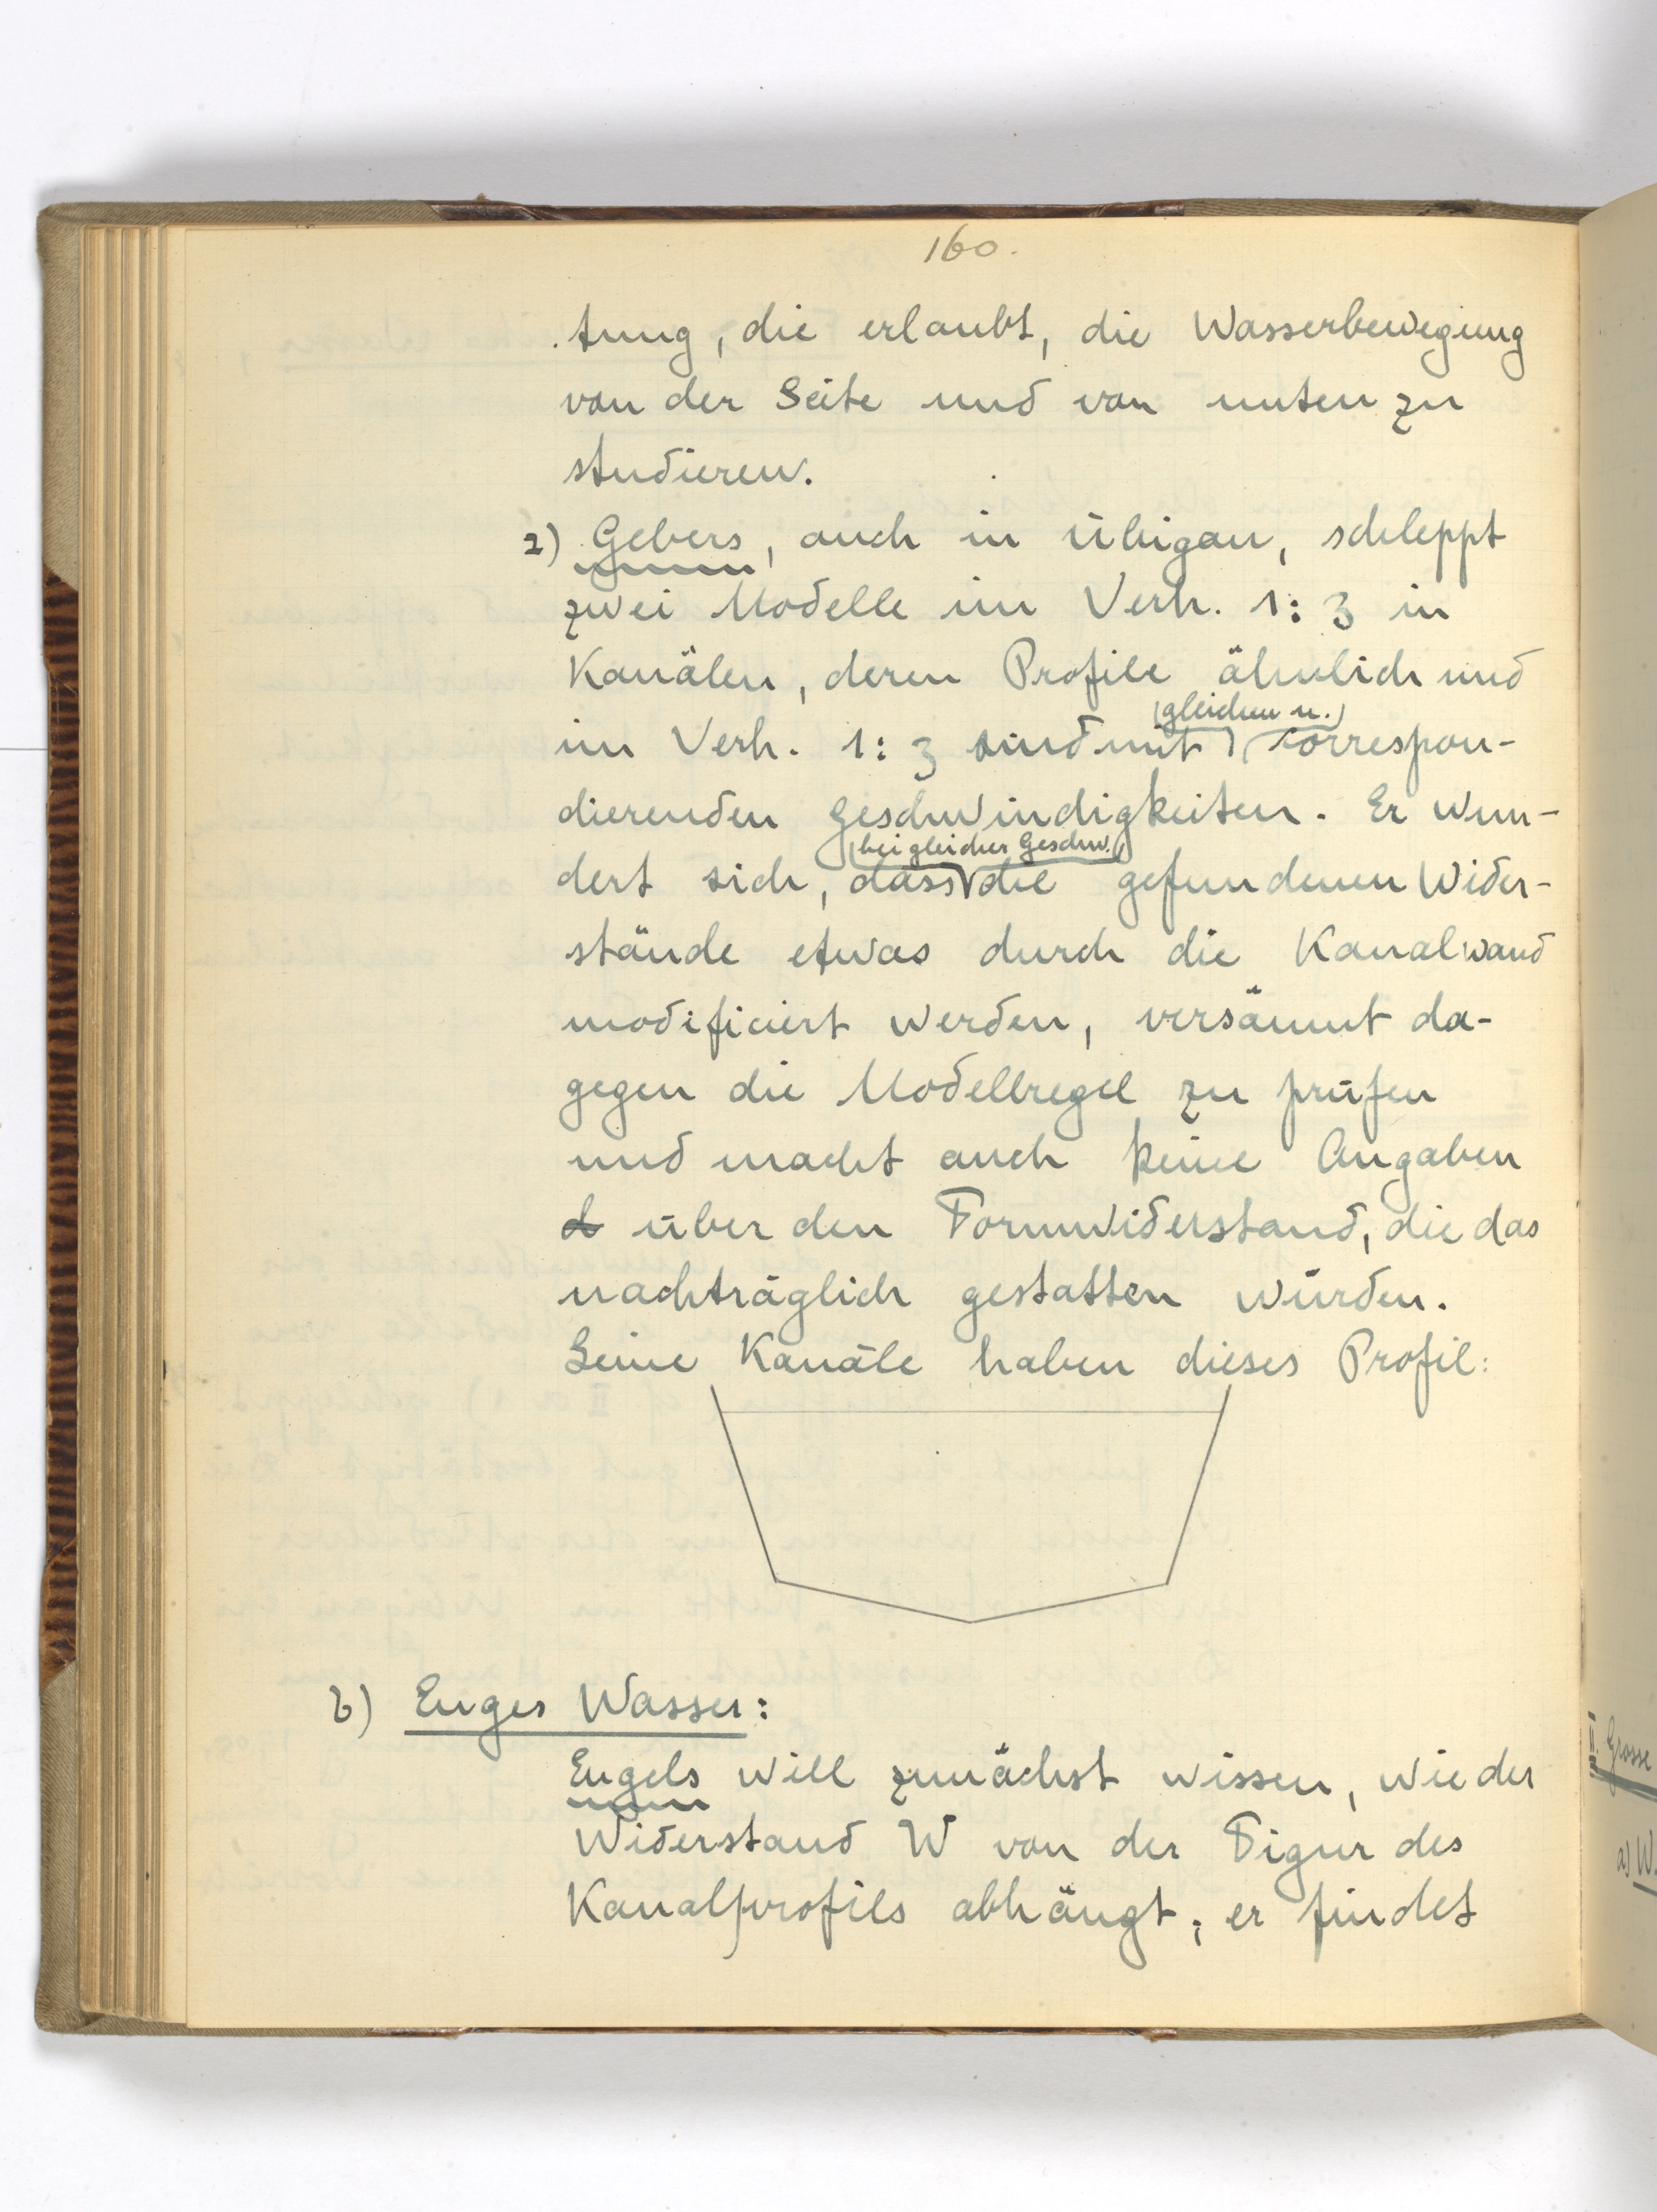 160.
tung, die erlaubt, die Wasserbewegung
von der Seite und von unten zu
studieren.
2) Gebers, auch in Übigau, schleppt
zwei Modelle im Verh. 1:3 in
Kanälen, deren Profile ähnlich und
(gleichen u.)
im Verh. 1:3 sind mit korrespon-
dierenden Geschwindigkeiten. Er wun-
(bei gleicher Geschw.)
dert sich, dass die gefundenen Wider-
stände etwas durch die Kanalwand
modificiert werden, versäumt da-
gegen die Modellregel zu prüfen
und macht auch keine Angaben
d über den Formwiderstand, die das
nachträglich gestatten würden.
Seine Kanäle haben dieses Profil:
b) Enges Wasser:
Engels will zunächst wissen, wie der
Widerstand W von der Figur des
Kanalprofils abhängt; er findet
II. Grosse
a) W.